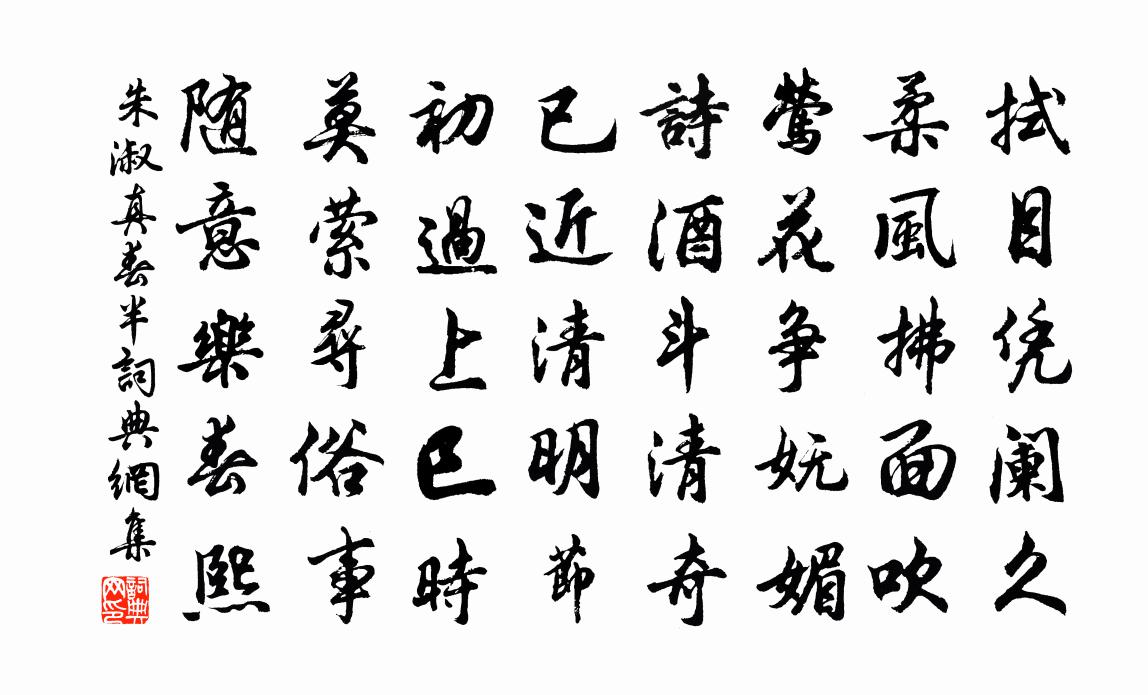 拭目凭阑久
柔風拂面吹
鶯花争妩媚
詩酒斗清奇
已近清明節
初過上巳時
莫萦尋俗事
随意樂春熙
朱淑真春半詞典網集
詞典网印